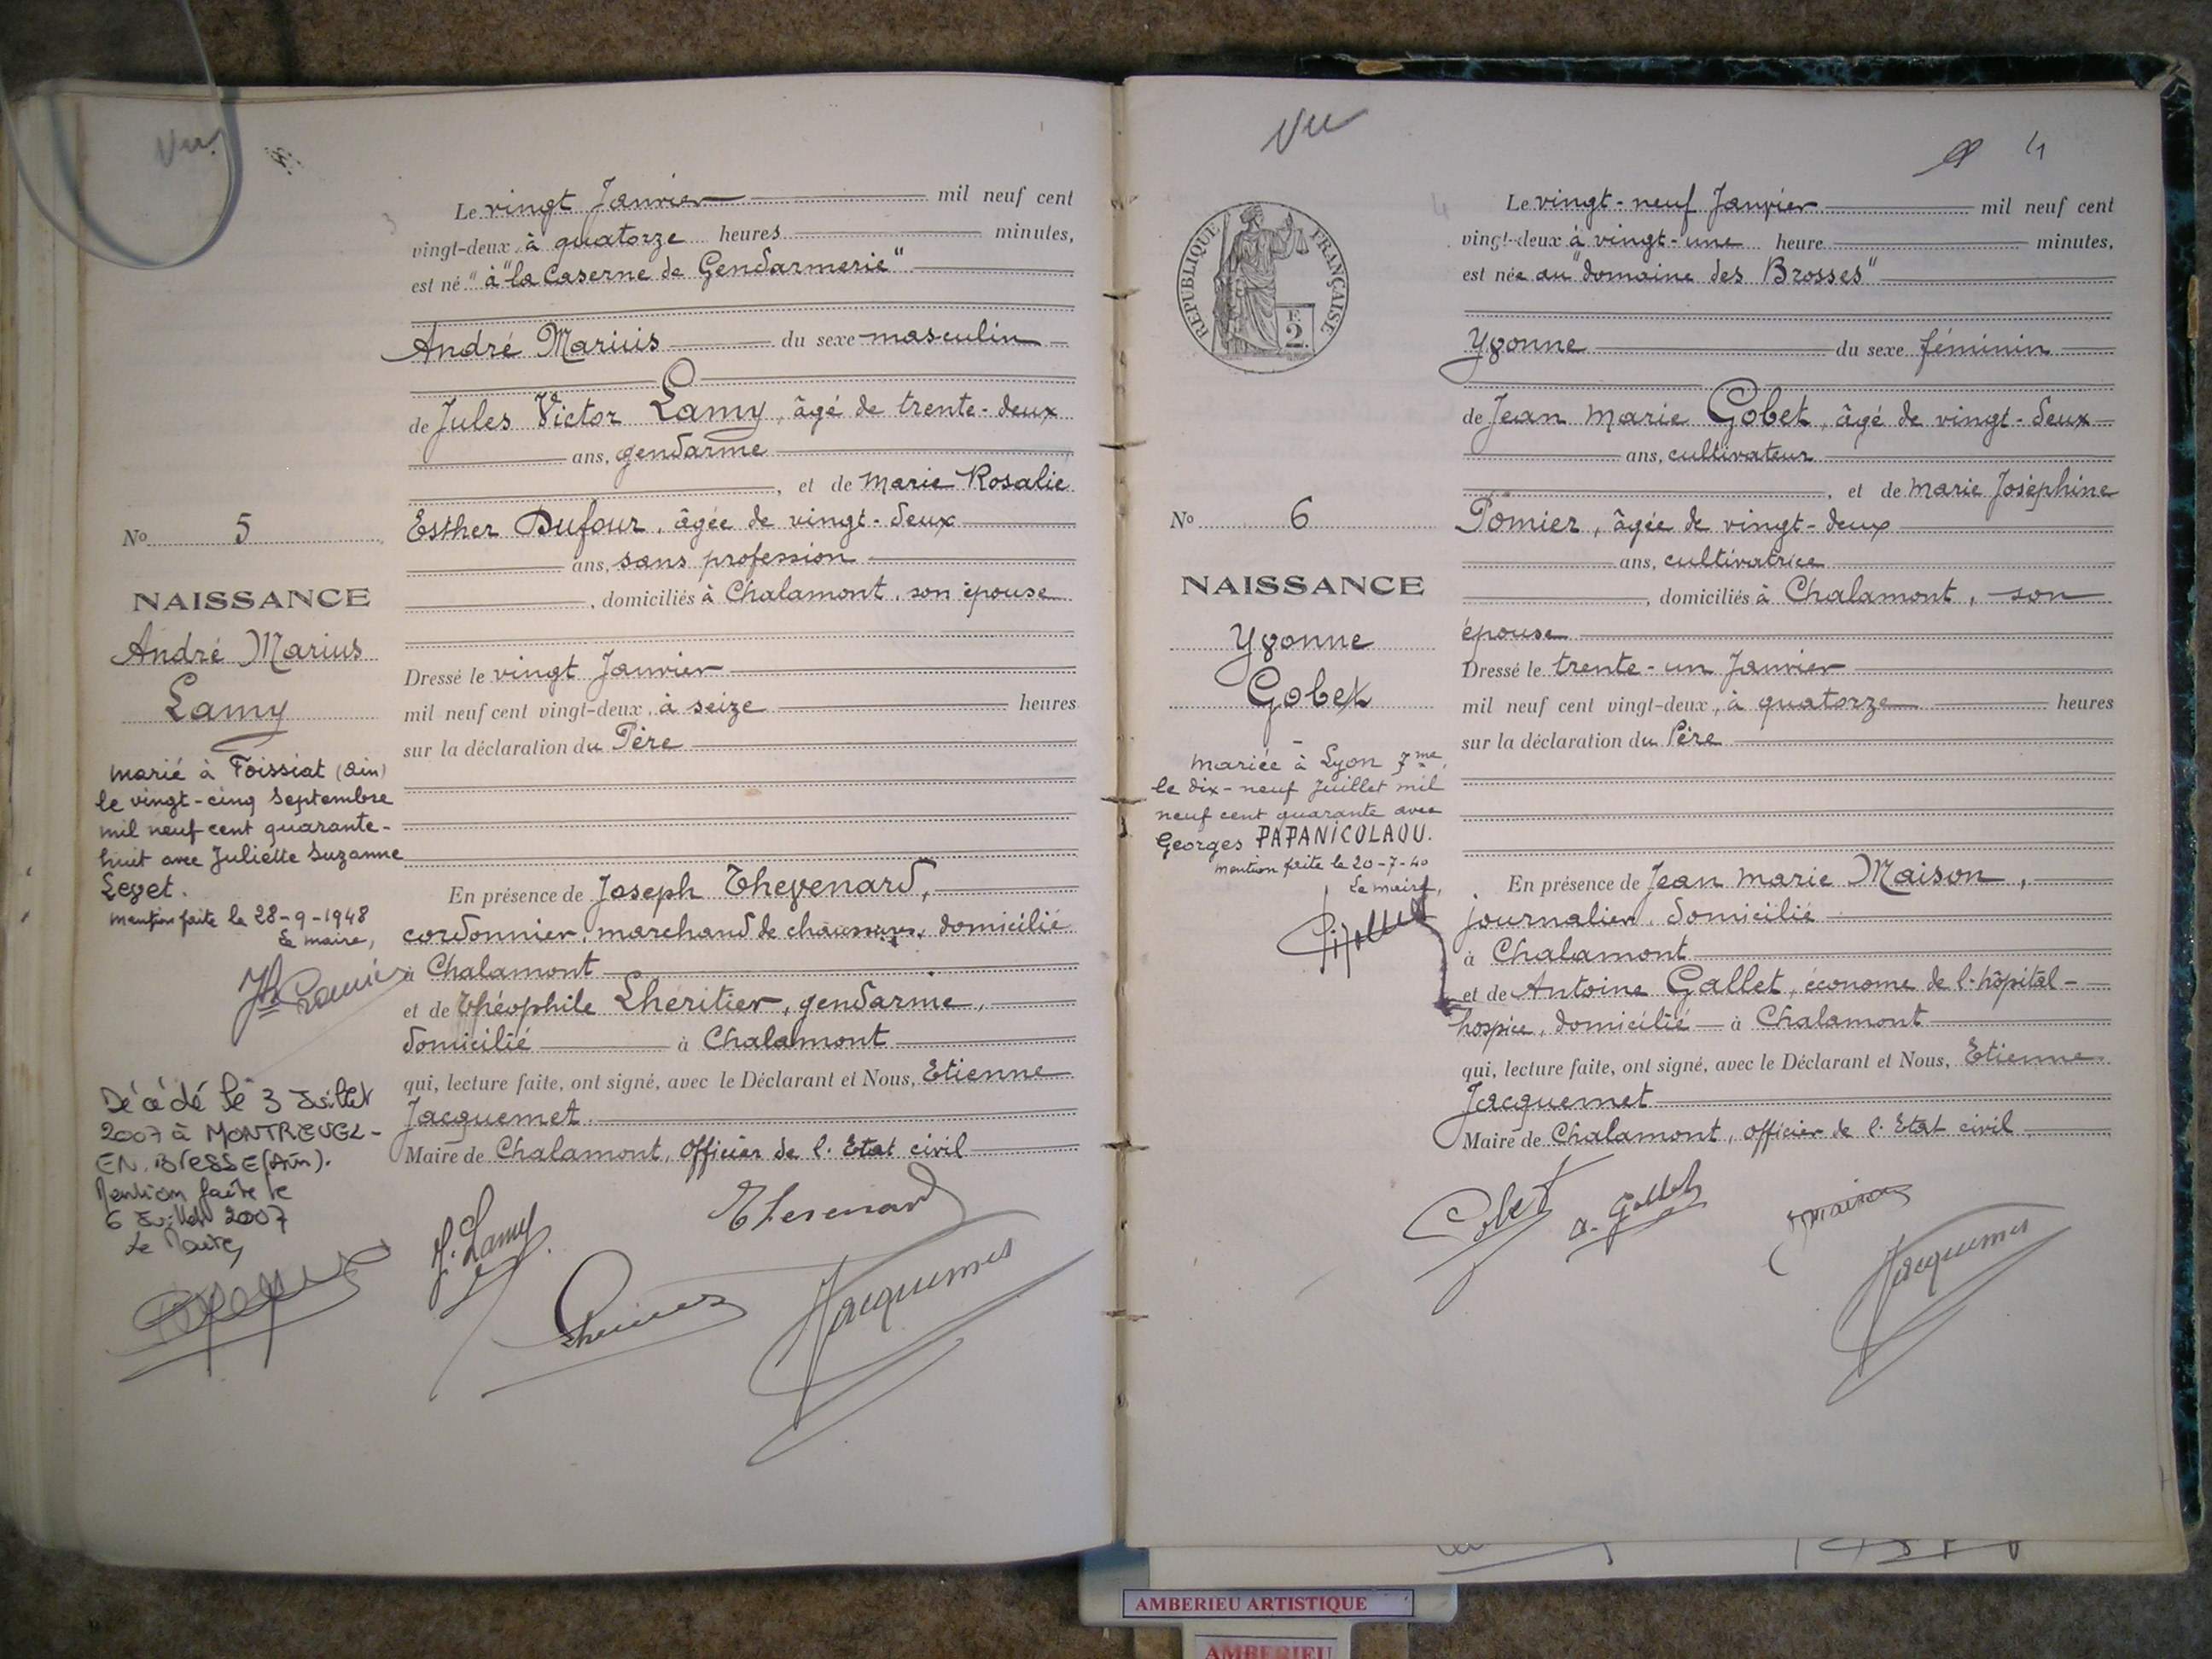 Vu.
Le vingt Janvier mil neuf cent
vingt-deux, à quatorze heures minutes,
est né "à "la Caserne de Gendarmerie"
André Marius du sexe masculin
de Jules Victor Lamy, âgé de trente-deux
ans, gendarme
, et de Marie Rosalie
Esther Dufour, âgée de vingt-deux
ans, sans profession
, domiciliés à Chalamont, son épouse
Dressé le vingt Janvier
mil neuf cent vingt-deux, à seize heures
sur la déclaration du Père
En présence de Joseph Thevenard,
cordonnier, marchand de chaussures, domicilié
à Chalamont
et de Théophile Lhéritier, gendarme,
domicilié à Chalamont
qui, lecture faite, ont signé, avec le Déclarant et Nous, Etienne
Jacquemet
Maire de Chalamont, Officier de l'Etat civil
J. Lamy
Thevenard
Jacquemet
No 5
NAISSANCE
André Marius
Lamy
marié à Foissiat (Ain)
le vingt-cinq Septembre
mil neuf cent quarante-
huit avec Juliette Suzanne
Levet.
Mention faite le 28-9-1948
Le maire,
Décédé le 3 Juillet
2007 à MONTREVEL-
EN-BRESSE (Ain).
Mention faite le
6 Juillet 2007
Le Maire,
Vu
4
RÉPUBLIQUE FRANÇAISE
F.
2
Le vingt-neuf Janvier mil neuf cent
vingt-deux à vingt-une heure minutes,
est née au "domaine des Brosses"
Yvonne du sexe féminin
de Jean Marie Gobet, âgé de vingt-deux
ans, cultivateur
, et de Marie Joséphine
Pomier, âgée de vingt-deux
ans, cultivatrice
, domiciliés à Chalamont, son
épouse
Dressé le trente-un Janvier
mil neuf cent vingt-deux, à quatorze heures
sur la déclaration du Père
En présence de Jean Marie Maison,
journalier, domicilié
à Chalamont
et de Antoine Gallet, économe de l'hôpital-
hospice, domicilié à Chalamont
qui, lecture faite, ont signé, avec le Déclarant et Nous, Etienne
Jacquemet
Maire de Chalamont, Officier de l'Etat civil
Gobet
A. Gallet
Maison
Jacquemet
No 6
NAISSANCE
Yvonne
Gobet
Mariée à Lyon 7me,
le dix-neuf Juillet mil
neuf cent quarante avec
Georges PAPANICOLAOU.
Mention faite le 20-7-40
Le maire,
AMBERIEU ARTISTIQUE
AMBERIEU